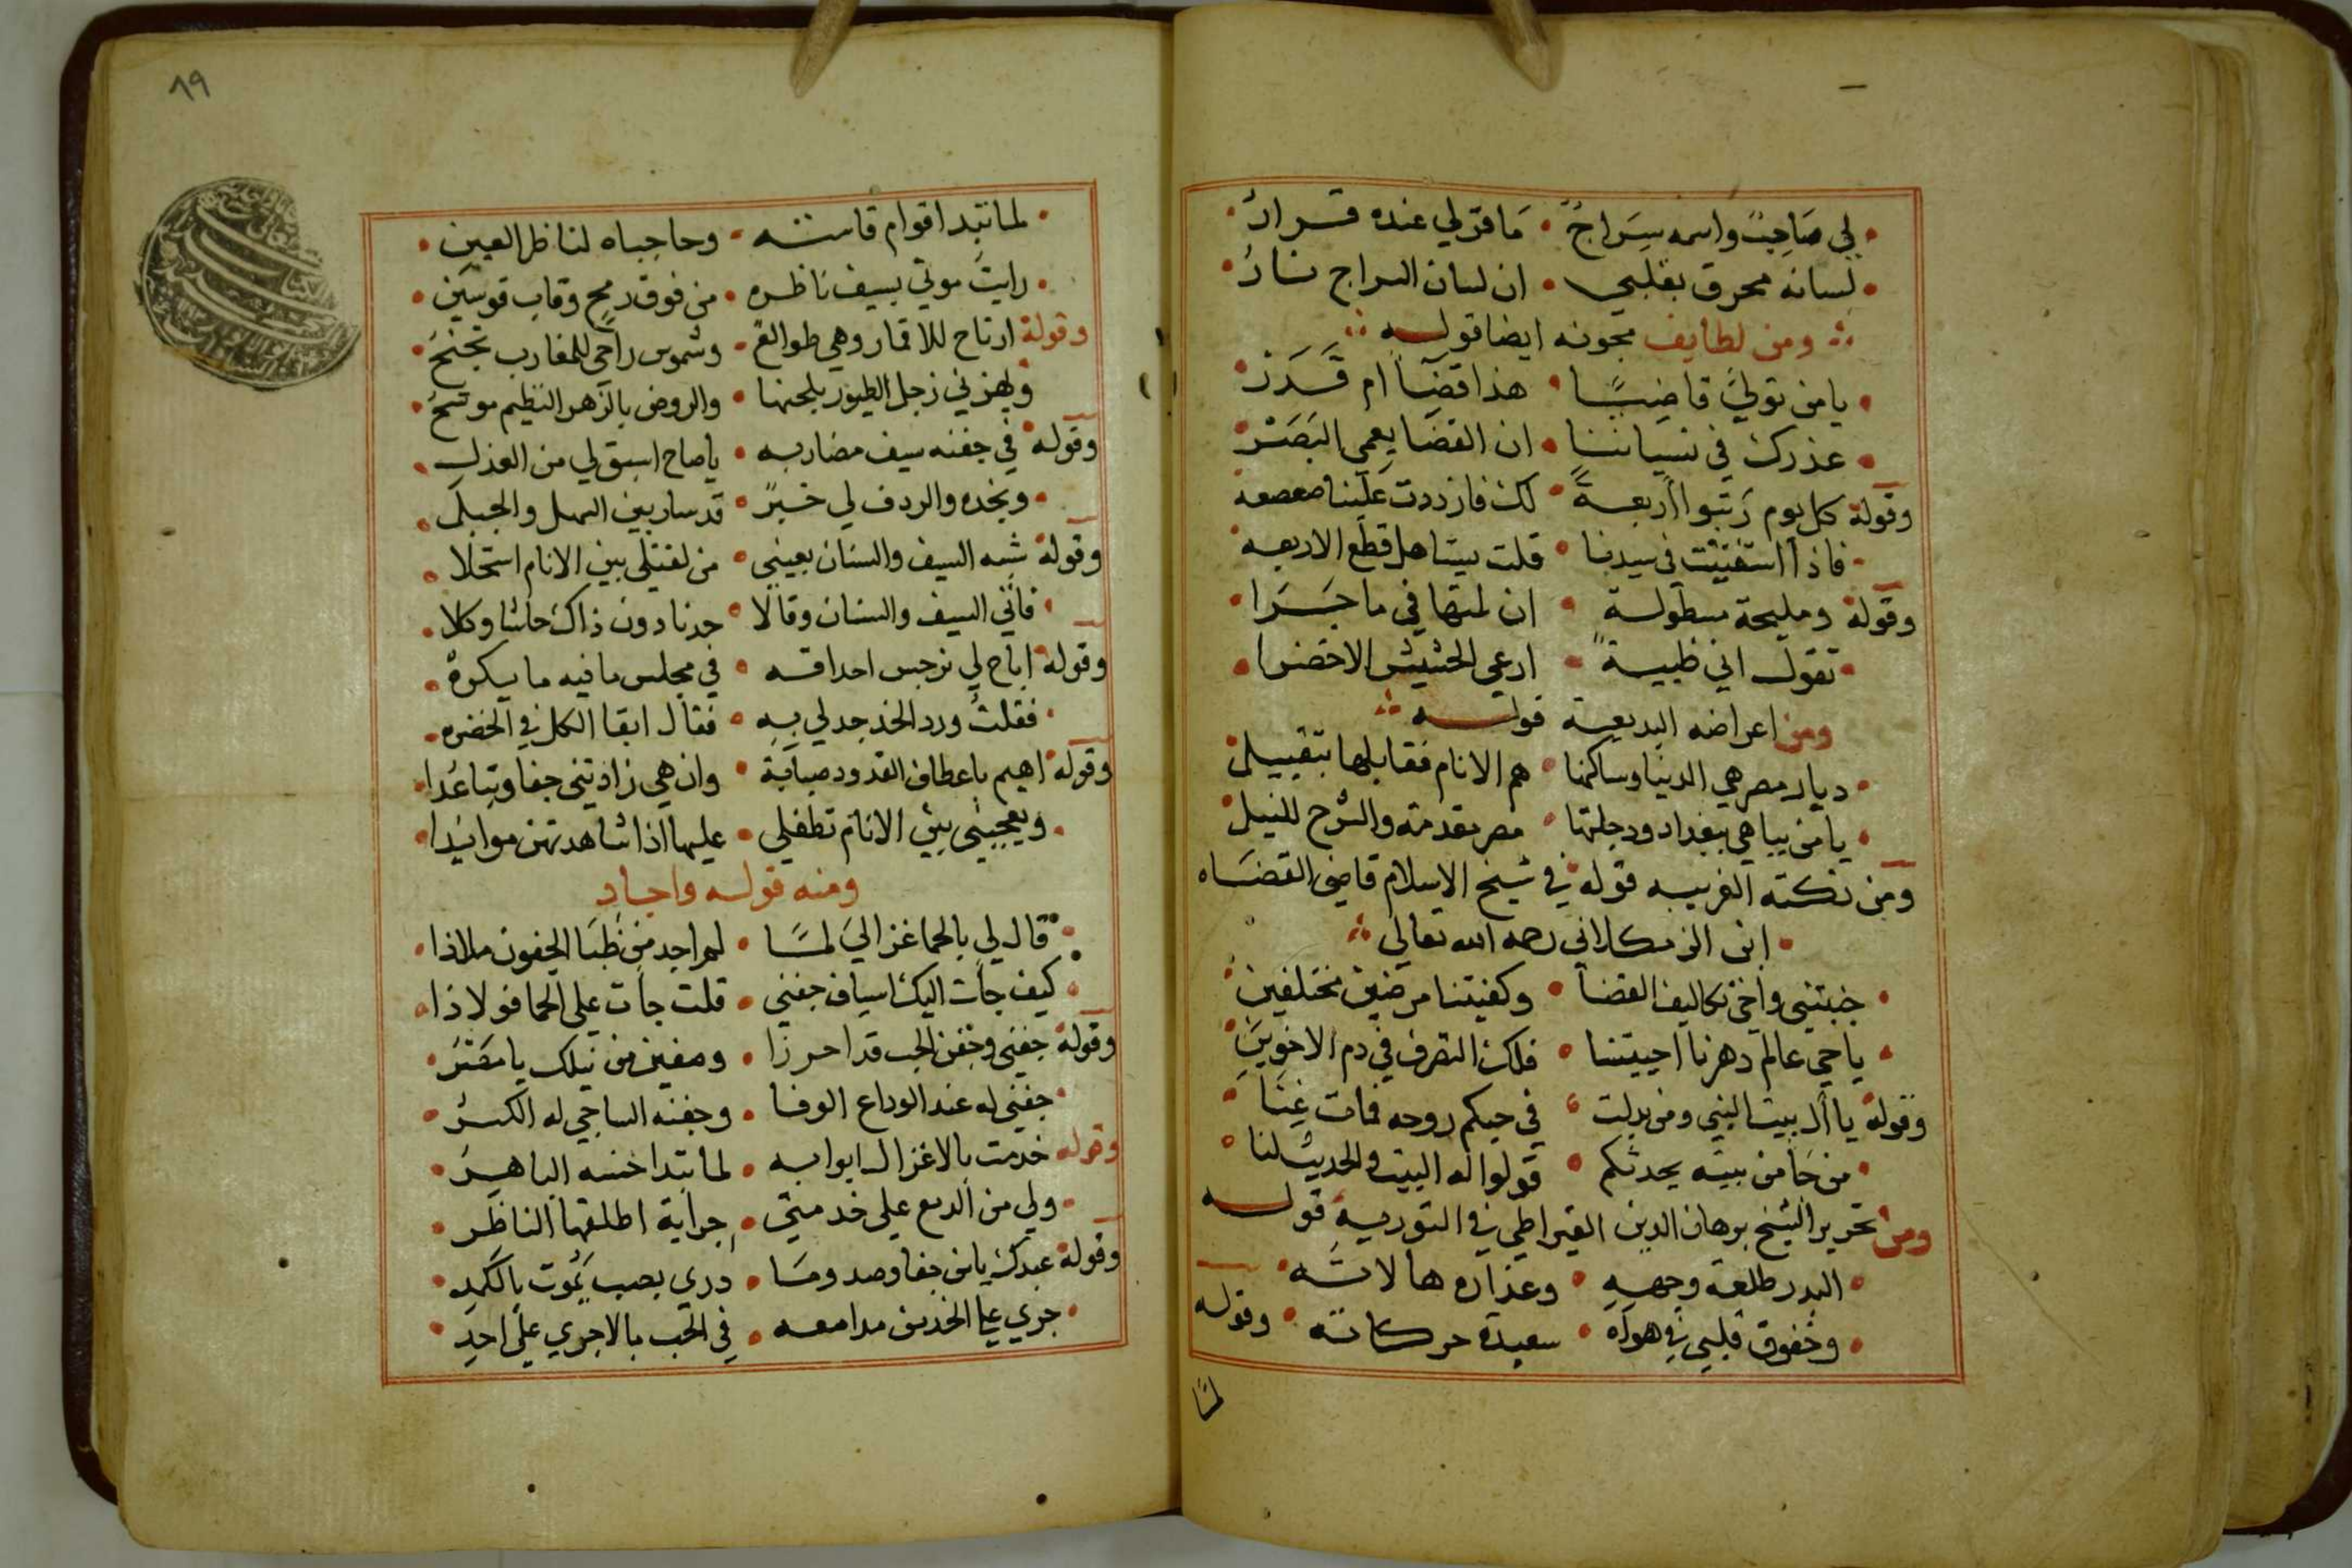 لي صَاحِبٌ واسمه سِرَاجٌ • مَا قرّ لي عنده قرارُ
لسانه محرق بقلبي • ان لسان السراج نارُ
ومن لطايف مجونه ايضا قوله
يا من تولى قاضيًا • هذا قضَآ ام قَدَرْ
عذرك في نسياننا • ان القضَا يعمي البَصَرْ
وقوله كل يوم رَتبوا أربعةً • لك فازددت علينا صعصعه
فاذا استفتيت في سيدنا • قلت بيتا هل قطع الاربعه
وقوله ومليحة مسطولة • ان لمتها في ما جَرَا
تقول اني ظبيةٌ • ارعي الحشيش الاخضرا
ومن اعراضه البديعية قوله
ديار مصر هي الدنيا وساكنها • هم الانام فقابلها بتقبيل
يا من يباهي ببغداد ودجلتها • مصر مقدمة والشرح للنيل
ومن نكته الغريبه قوله في شيخ الاسلام قاضي القضَاه
ابن الزمكلاني رحمه الله تعالى
جنبتني واخي تكاليف القضا • وكفيتنا مرضين مختلفين
يا حي عالم دهرنا احييتنا • فلك التصرف في دم الاخوين
وقوله يا أل بيت النبي ومن بدلت • في حبكم روحه فمات غِنَا
من جَا من بيته يحدثكم • قولوا له البيت والحديث لنا
ومن تحرير الشيخ برهان الدين القيراطي في التورية قوله
البدر طلعة وجههِ • وعذاره هالاته
وخفوق قلبي في هواه • سعيدة حركاته • وقوله
لمَّا
٨٩
لما تبدا قوام قامته • وحاجباه لناظر العين
رايت موتي بسيف ناظره • من فوق رمح وقاب قوسين
وقوله ارتاح للاقمار وهي طوالع • وشموس راحي للمغارب تجنحُ
ويهزني زجل الطيور بلحنها • والروض بالزهر النظيم موشحُ
وقوله في جفنه سيف مضاربه • يا صاح اسبق لي من العذل
وبخده والردف لي خبرٌ • قد سار بين السهل والجبل
وقوله شبه السيف والسنان بعيني • من لقتلي بين الانام استحلا
فاتي السيف والسنان وقالا • حدنا دون ذاك حاشا وكلا
وقوله اباح لي نرجس احداقه • في مجلس ما فيه ما يكره
فقلت ورد الخد جد لي به • فقال ابقا الكل في الخضره
وقوله اهيم باعطاف القدود صبابة • وان هي زادتني جفا وتباعُدا
ويعجبني بين الانام تطفلي • عليها اذا شاهدتهن موائدا
ومنه قوله واجاد
قال لي بالحما غزالي لمَّا • لم اجد من ظبَا الجفون ملاذا
كيف جات اليك اسياف جفني • قلت جات على الحما فولاذا
وقوله جفني وجفن الحب قد احرزا • وصفين من نيلك يا مصرُ
جفني له عند الوداع الوفا • وجفنه الساجي له الكسرُ
وقوله خدمت بالاغزال ابوابه • لما بَتدا حسنه الباهرُ
ولي من الدمع على خدمتي • جراية اطلقها الناظر
وقوله عبدك يا من جفا وصد وما • دري بصب يموت بالكمدِ
جري على الخدين مدامعه • في الحب ما لا جري على احدِ